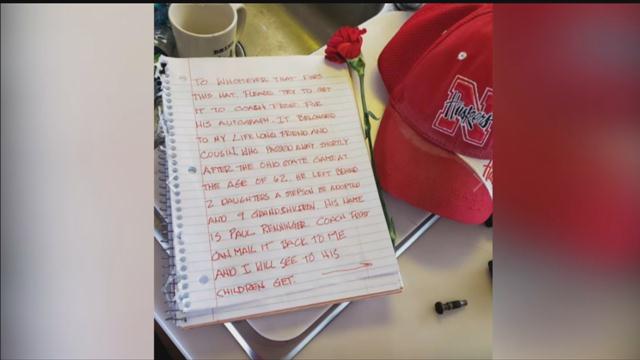 TO WHOMEVER THAT FINDS
THIS HAT. PLEASE TRY TO GET
IT TO COACH FROST FOR
HIS AUTOGRAPH. IT BELONGED
TO MY LIFE LONG FRIEND AND
COUSIN, WHO PASSED AWAY SHORTLY
AFTER THE OHIO STATE GAME AT
THE AGE OF 62. HE LEFT BEHIND
2 DAUGHTERS A STEPSON HE ADOPTED
AND 9 GRANDCHILDREN. HIS NAME
IS PAUL RENNINGER. COACH FROST
CAN MAIL IT BACK TO ME
AND I WILL SEE TO HIS
CHILDREN GET.
N
Huskers